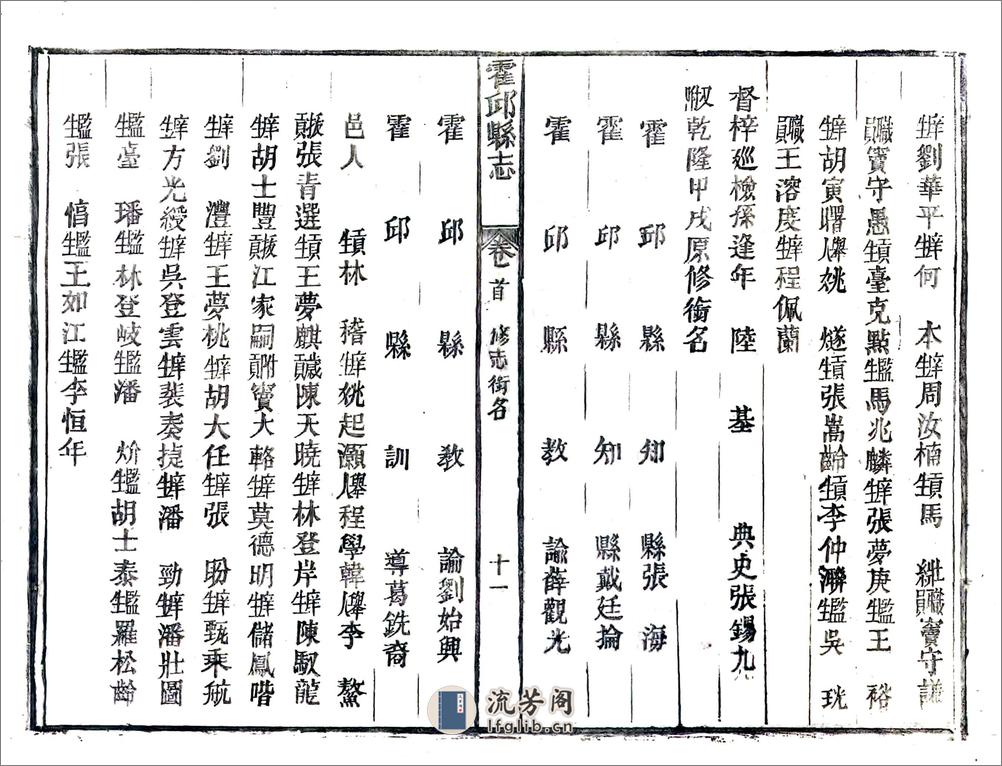 庠生劉華平庠生何 本庠生周汝楠貢生馬 紕職員竇守謙
職員竇守愚貢生臺克點監生馬兆麟庠生張夢庚監生王 裕
庠生胡寅曙舉人姚 燧貢生張嵩齡貢生李仲瀰監生吳 珖
職員王溶度庠生程佩蘭
督梓巡檢孫逢年 陸 基 典史張錫九
敘乾隆甲戌原修銜名
霍邱縣知縣張 海
霍邱縣知縣戴廷掄
霍邱縣教諭薛觀光
霍邱縣志 卷首 修志銜名 十一
霍邱縣教諭劉始興
霍邱縣訓導葛銑裔
邑人 貢生林 稽庠生姚起灝舉人程學韓舉人李 鰲
歲貢張青選貢生王夢麒歲貢陳天曉庠生林登岸庠生陳馭龍
庠生胡士豐歲貢江家嗣附貢竇大輅庠生莫德明庠生儲鳳喈
庠生劉 灃庠生王夢桃庠生胡大任庠生張 盼庠生甄乘航
庠生方光綬庠生吳登雲庠生裴奏㨗庠生潘 勁庠生潘壯圖
監生臺 璠監生林登岐監生潘 炌監生胡士泰監生羅松齡
監生張 監生王如江監生李恒年
流芳阁
lfglib.cn